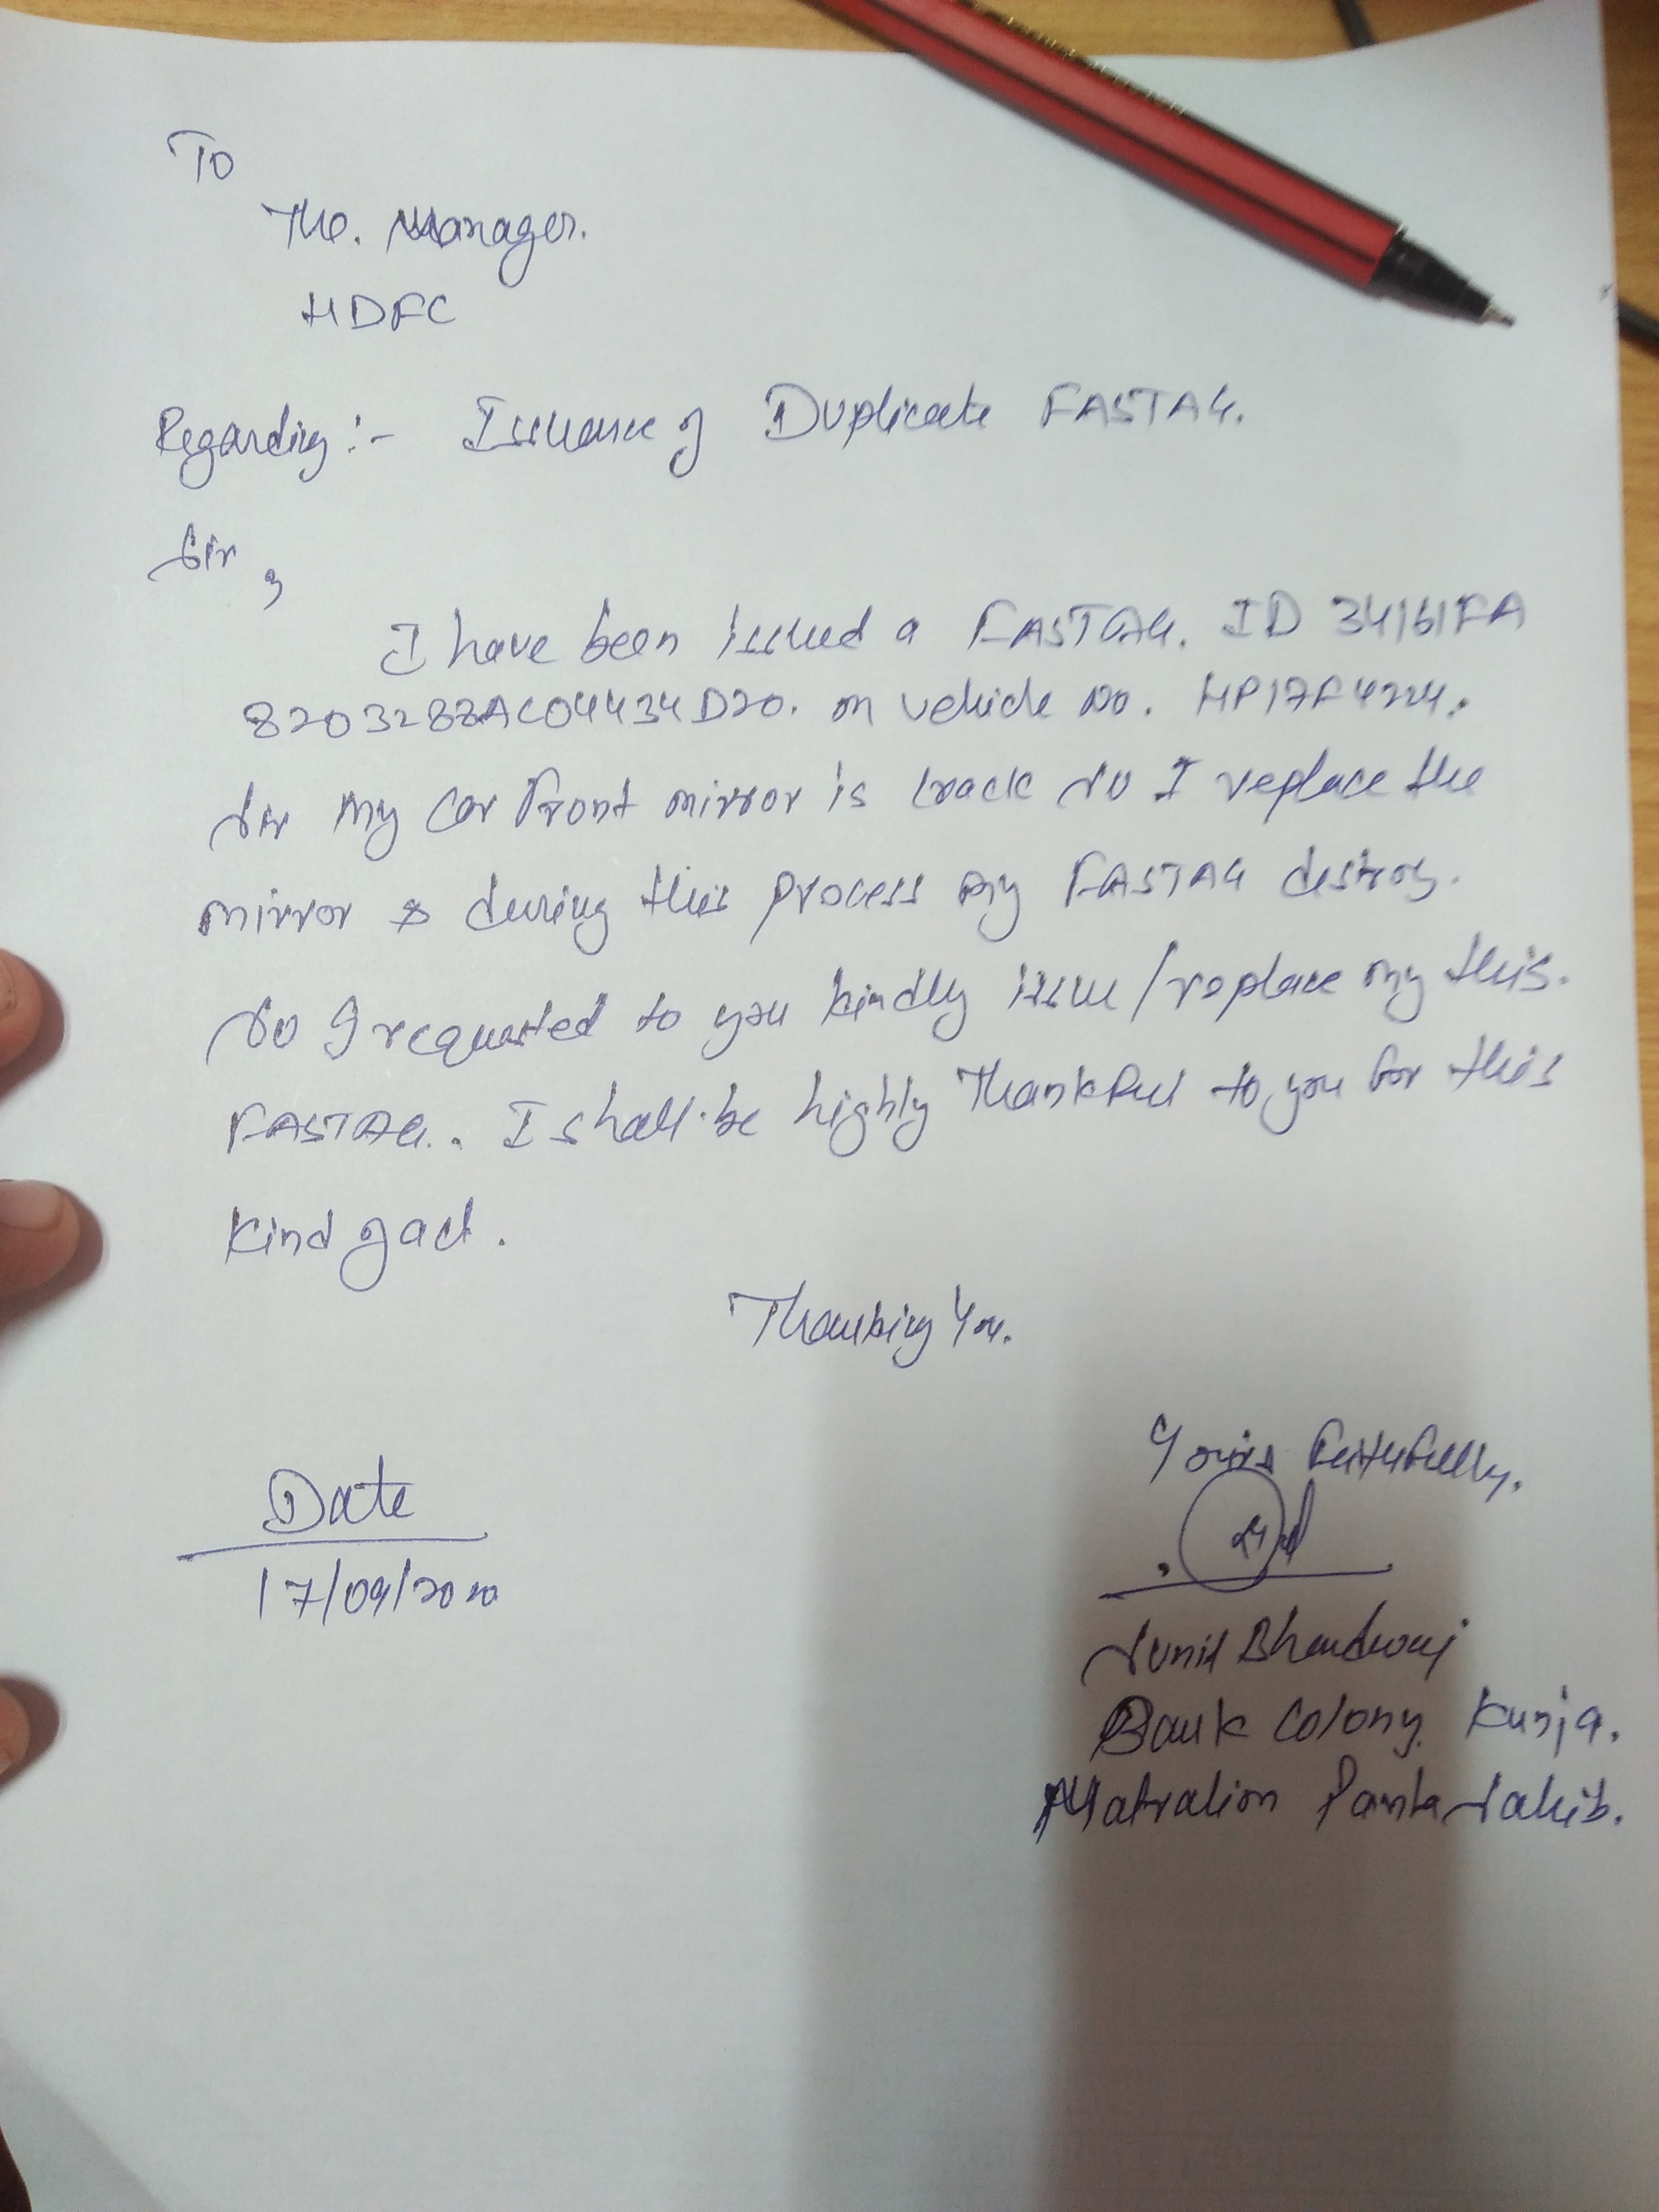 To
The. Manager.
HDFC
Regarding:- Issuance of Duplicate FASTAG.
Sir,
I have been issued a FASTAG. ID 34161FA
8203288AC04434D20. on vehicle No. HP17F4224.
Sir my car front mirror is crack so I replace the
mirror & during this process my FASTAG destroy.
So I requested to you kindly issue/replace my this.
FASTAG. I shall be highly Thankful to you for this
kind of act.
Thanking You.
Yours faithfully,
Date
17/09/2020
Sunil Bhardwaj
Bank Colony Kunja.
Matralion Paonta Sahib.